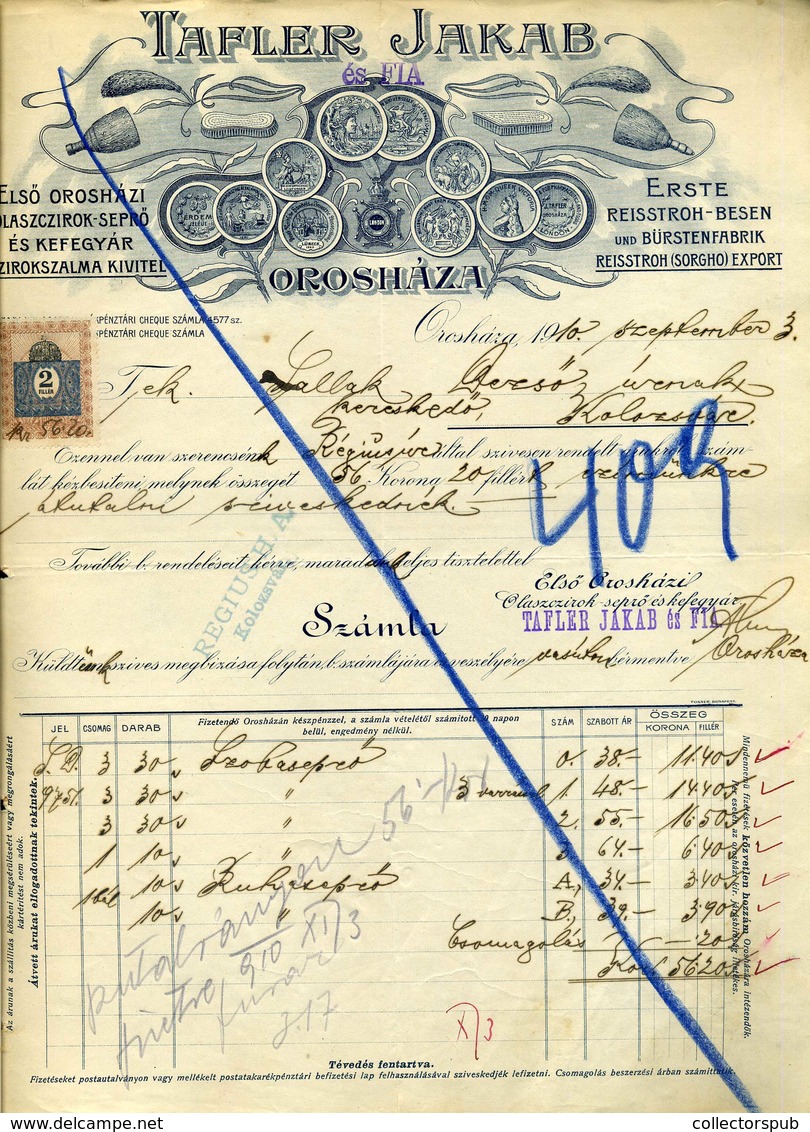 TAFLER JAKAB
és FIA
ELSŐ OROSHÁZI
OLASZCZIROK-SEPRŐ
ÉS KEFEGYÁR
ZIROKSZALMA KIVITEL
ERSTE
REISSTROH-BESEN
UND BÜRSTENFABRIK
REISSTROH (SORGHO) EXPORT
ÉRDEM
JELEUL
LÜBECK
LONDON
QUEEN VICTORIA
J. TAFLER
OROSHÁZA
LONDON
OROSHÁZA
KPÉNZTÁRI CHEQUE SZÁMLA 4577 sz.
KPÉNZTÁRI CHEQUE SZÁMLA
Orosháza, 1910. szeptember 3.
2
FILLÉR
Kr 56 20.
Tek. Sallak Dezső úrnak
kereskedő, Kolozsvár.
Ezennel van szerencsénk Régius úr által szivesen rendelt árukról szám-
lát kézbesiteni, melynek összegét 56 Korona 20 fillért
átutalni sziveskednék.
409
További b. rendeléseit kérve, maradunk teljes tisztelettel
REGIUS H. A.
Kolozsvár
Első Orosházi
Olaszczirok-seprő és kefegyár
TAFLER JAKAB és FIA
Számla
Orosháza
Küldtünk szives megbizása folytán, b. számlájára és veszélyére vasúton bérmentve
POSNER, BUDAPEST.
JEL CSOMAG DARAB
Fizetendő Orosházán készpénzzel, a számla vételétől számított 30 napon
belül, engedmény nélkül.
SZÁM SZABOTT ÁR ÖSSZEG
KORONA FILLÉR
S.D. 3 30 Szobaseprő 0. 38.- 11.40
9751. 3 30 " 3 varrással 1. 48.- 14.40
3 30 " 2. 55.- 16.50
1 10 " 3. 64.- 6.40
1 bál 10 Ruhaseprő A, 34.- 3.40
10 " B, 39.- 3.90
Csomagolás -.20
Kor. 56.20
56
910 XI/3
3.17
X/3
Az árunak a szállítás közbeni megsérüléséért vagy megrongálásaért
kártérítést nem adok.
Átvett árukat elfogadottnak tekintek.
Mindennemű fizetések közvetlen hozzám Orosházára intézendők.
Per esetén az orosházi kir. járásbiróság illetékes.
Tévedés fentartva.
Fizetéseket postautalványon vagy mellékelt postatakarékpénztári befizetési lap felhasználásával sziveskedjék lefizetni. Csomagolás beszerzési árban számíttatik.
collectorspub